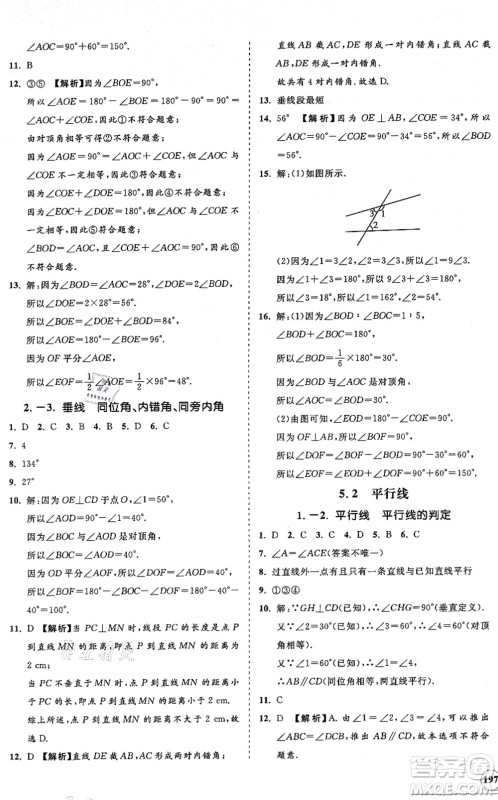 ∠AOC=90°+60°=150°.
11. B
12. ③⑤ 【解析】因为∠BOE=90°,
所以∠AOE=180°-∠BOE=180°-90°=90°=∠BOE,因此①不符合题意;
由对顶角相等可得②不符合题意;
因为∠AOE=90°=∠AOC+∠COE,因此③符合题意;
因为∠COE+∠DOE=180°,因此④不符合题意;
因为∠EOC+∠DOE=180°,但∠AOC与∠COE不一定相等,因此⑤符合题意;
因为∠BOD=∠AOC,且∠COE+∠DOE=180°,因此⑥不符合题意.
13. 解:因为∠BOD=∠AOC=28°,∠BOD=∠DOF,
所以∠DOE=2×28°=56°.
所以∠AOE=180°-56°=124°.
因为OF平分∠AOE,
所以∠EOF=1/2∠AOE=1/2×124°=62°.
2.-3. 垂线 同位角、内错角、同旁内角
1. D 2. C 3. B 4. D 5. B 6. B
7. 4
8. 134°
9. 27°
10. 解:因为OE⊥CD于点O,∠1=50°,
所以∠AOD=90°-∠1=40°.
因为∠BOC与∠AOD是对顶角,
所以∠BOC=∠AOD=40°.
因为OD平分∠AOF,
所以∠DOF=∠AOD=40°.
所以∠BOF=180°-∠BOC-∠DOF=180°-40°-40°=100°.
11. D 【解析】当PC⊥MN时,PC的长度是点P到直线MN的距离,即点P到直线MN的距离为2 cm;
当PC不垂直于MN时,点P到直线MN的距离小于PC的长度,即点P到直线MN的距离小于2 cm.
综上所述,点P到直线MN的距离不大于2 cm.故选D.
12. D 【解析】直线DE截AB,AC形成两对内错角;
直线AB截AC,DE形成一对内错角;直线AC截AB,DE形成一对内错角.
故共有4对内错角.故选D.
13. 垂线段最短
14. 56° 【解析】因为OE⊥AB,∠COE=34°,所以∠BOC=90°-∠COE=90°-34°=56°.所以∠AOD=∠BOC=56°.
15. 解:(1)如图所示.
3 1
2
(2)因为∠1=3∠2,∠2=3∠3,所以∠1=9∠3.
又因为∠1+∠3=180°,所以9∠3+∠3=180°.
所以∠3=18°.所以∠1=162°,∠2=54°.
16. 解:因为∠BOD∶∠BOC=1∶5,
∠BOD+∠BOC=180°,
所以∠BOD=1/6×180°=30°.
所以∠AOC=∠BOD=30°.
因为OE⊥CD,所以∠DOE=90°.
所以∠BOE=90°-30°=60°.
因为OF⊥AB,所以∠BOF=90°.
所以∠EOF=∠BOE+∠BOF=60°+90°=150°.
5.2 平行线
1.-2. 平行线 平行线的判定
1. D 2. C 3. A 4. D 5. B 6. C
7. ∠A=∠ACE(答案不唯一)
8. 过直线外一点有且只有一条直线与已知直线平行
9. ①③④
10. 解:∵GH⊥CD(已知),∴∠CHG=90°(垂直定义).
又∵∠2=30°(已知),∴∠3=60°.
∴∠4=60°(对顶角相等).
又∵∠1=60°(已知),∴∠1=∠4.
∴AB∥CD(同位角相等,两直线平行).
11. C
12. D 【解析】A.∵∠1=∠2,∴a∥b,故本选项不符合题意.
197